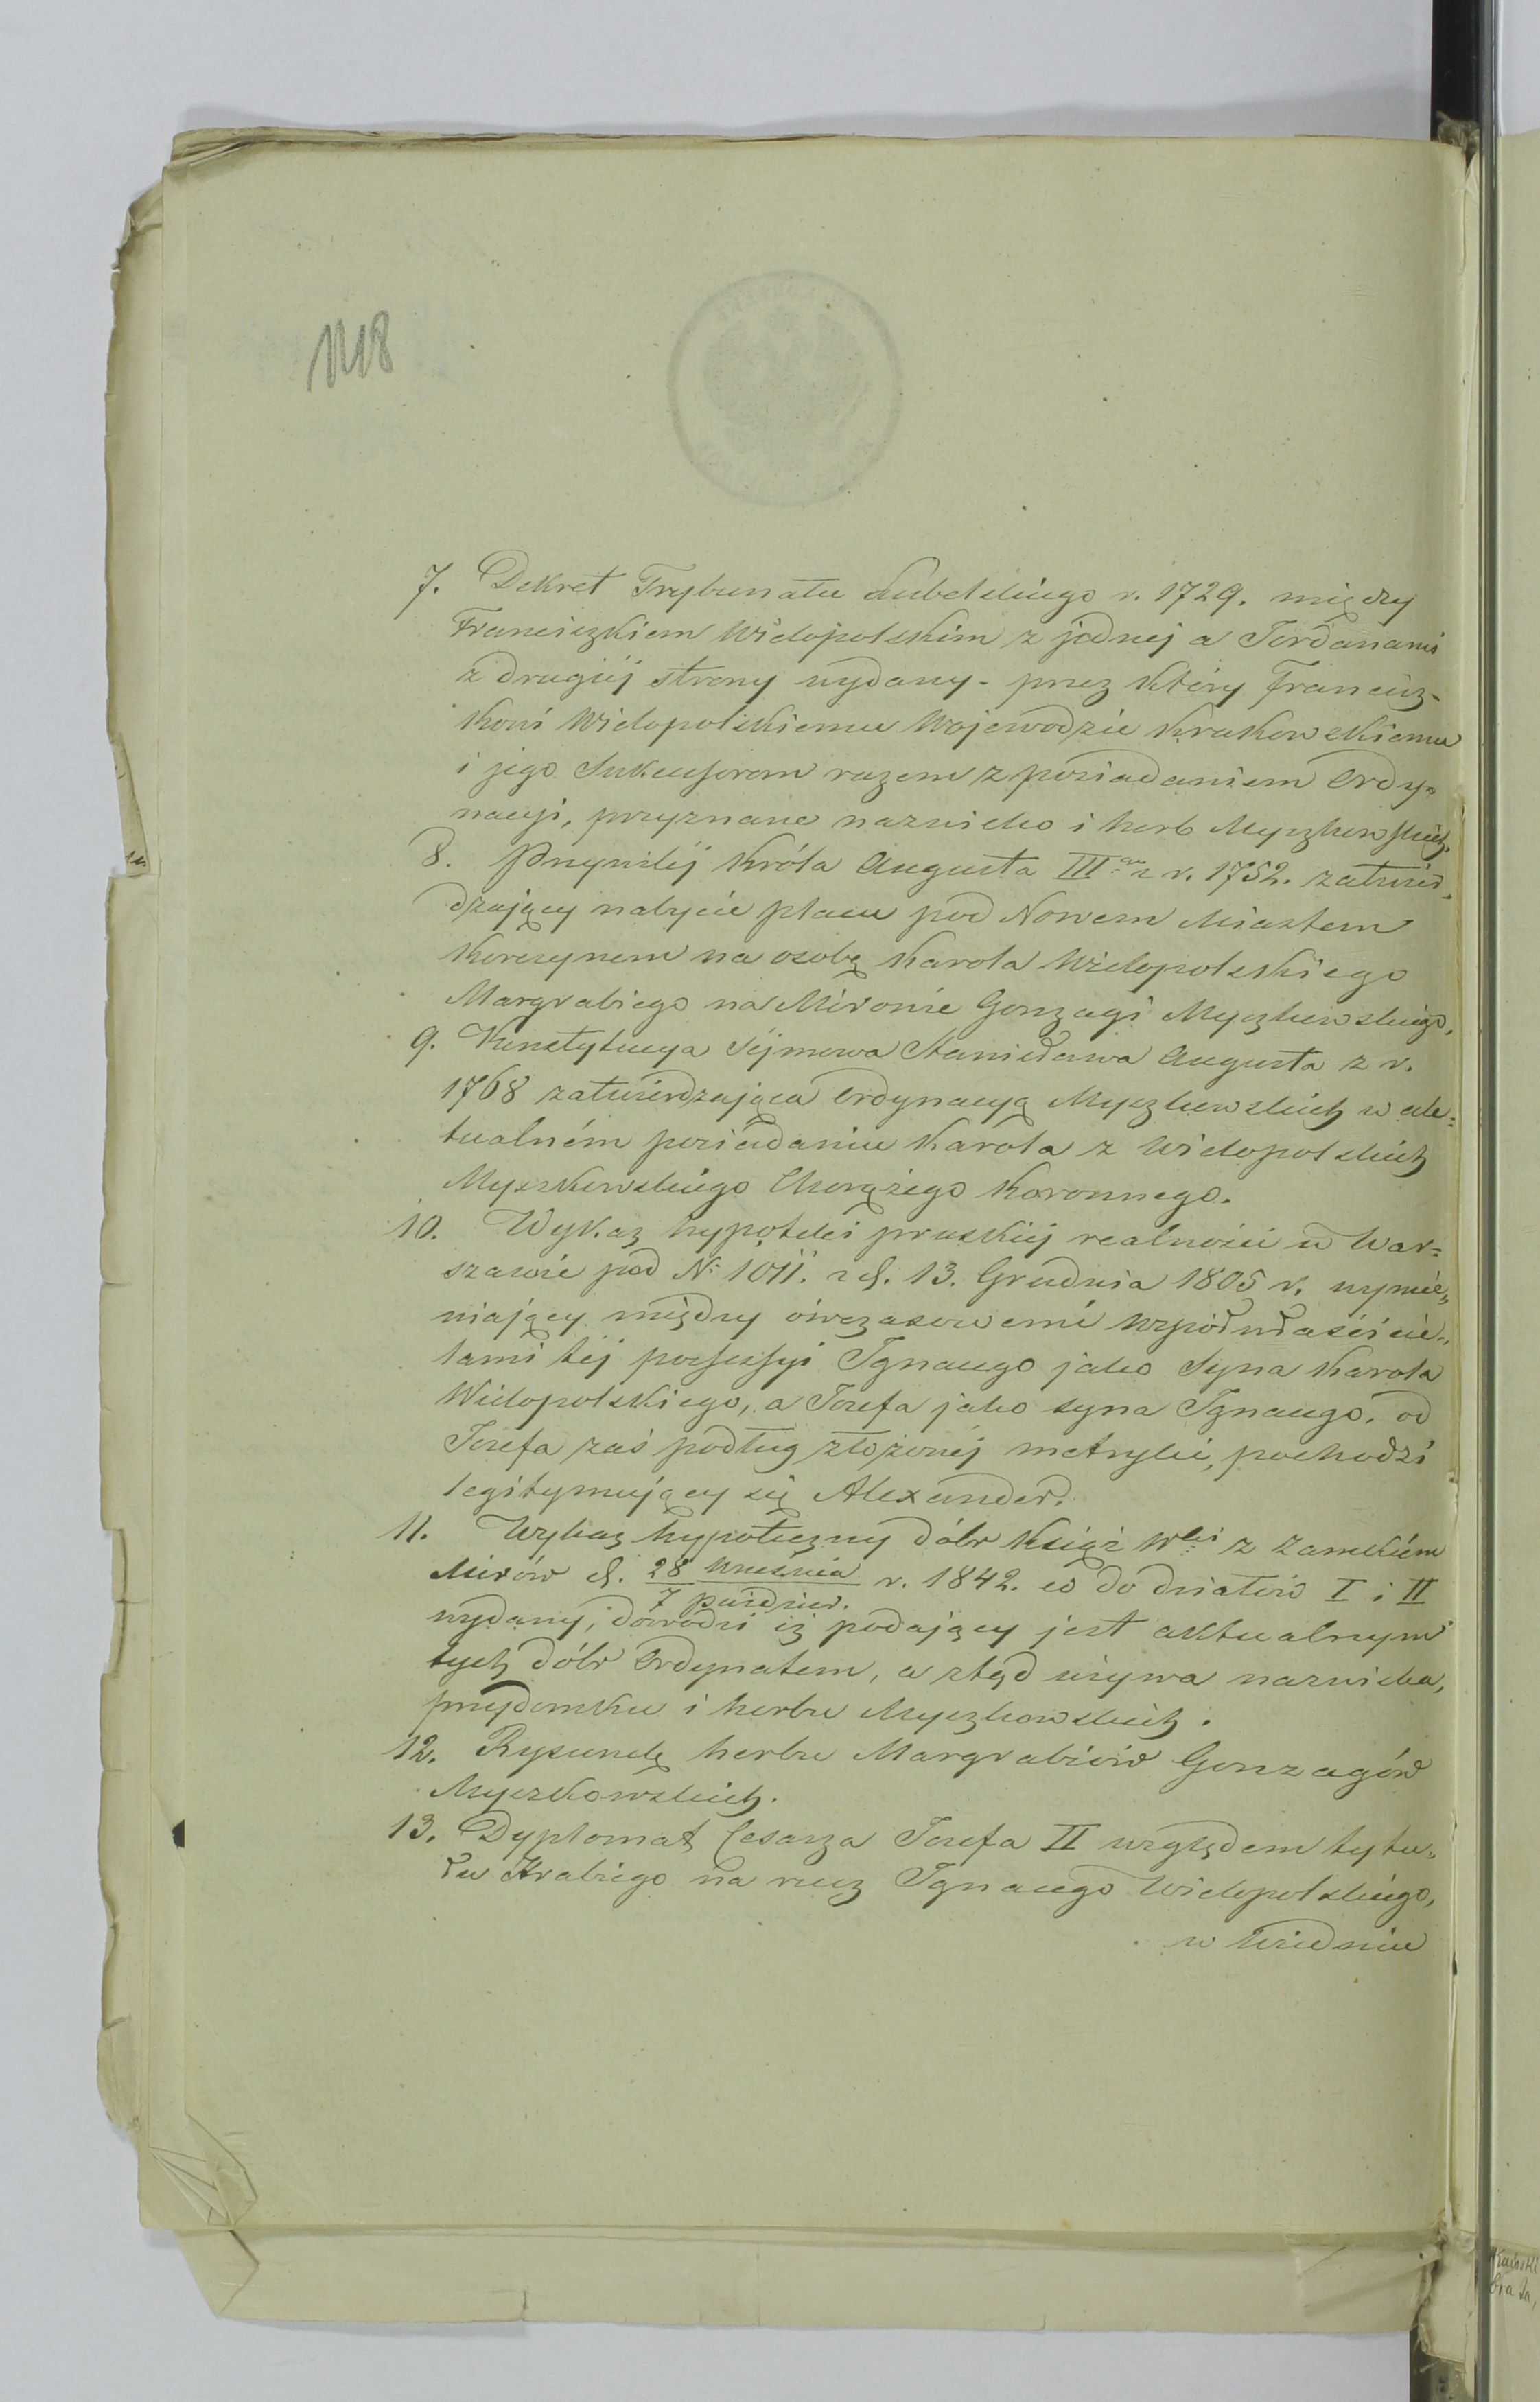 1118
7. Dekret Trybunału Lubelskiego r. 1729. między
Franciszkiem Wielopolskim z jednej a Jordanami
z drugiéj strony wydany - przez który Francisz-
kowi Wielopolskiemu Wojewodzie Krakowskiemu
i jego Sukcessorom razem z posiadaniem Ordy=
nacyi, przyznane nazwisko i herb Myszkowskich.
8. Przywiléj Króla Augusta III go z r. 1752. zatwier=
dzający nabycie placu pod Nowem Miastem
Korczynem na osobę Karola Wielopolskiego
Margrabiego na Mirowie Gonzagi Myszkowskiego.
9. Konstytucya Séjmowa Stanisława Augusta z r.
1768 zatwierdzająca Ordynacyą Myszkowskich w ak=
tualném posiadaniu Karola z Wielopolskich
Myszkowskiego Chorążego Koronnego.
10. Wykaz hypoteki pruskiej realności w War=
szawie pod No 1011. z d. 13. Grudnia 1805 r. wymie=
niający między ówczasowemi współwłaścicie=
lami téj possessyi Ignacego jako Syna Karola
Wielopolskiego, a Józefa jako syna Ignacego, od
Józefa zaś podług złożonéj metryki, pochodzi
legitymujący się Alexander.
11. Wykaz hypoteczny dóbr Książ Wlki z Zamkiem
Mirów d. 28 Września / 7 Paździer. r. 1842. co do działów I i II
wydany, dowodzi iż podający jest aktualnym
tych dóbr Ordynatem, a ztąd używa nazwiska,
przydomku i herbu Myszkowskich.
12. Rysunek herbu Margrabiów Gonzagów
Myszkowskich.
13. Dyplomat Cesarza Józefa II względem tytu=
łu Hrabiego na rzecz Ignacego Wielopolskiego,
w Wiedniu